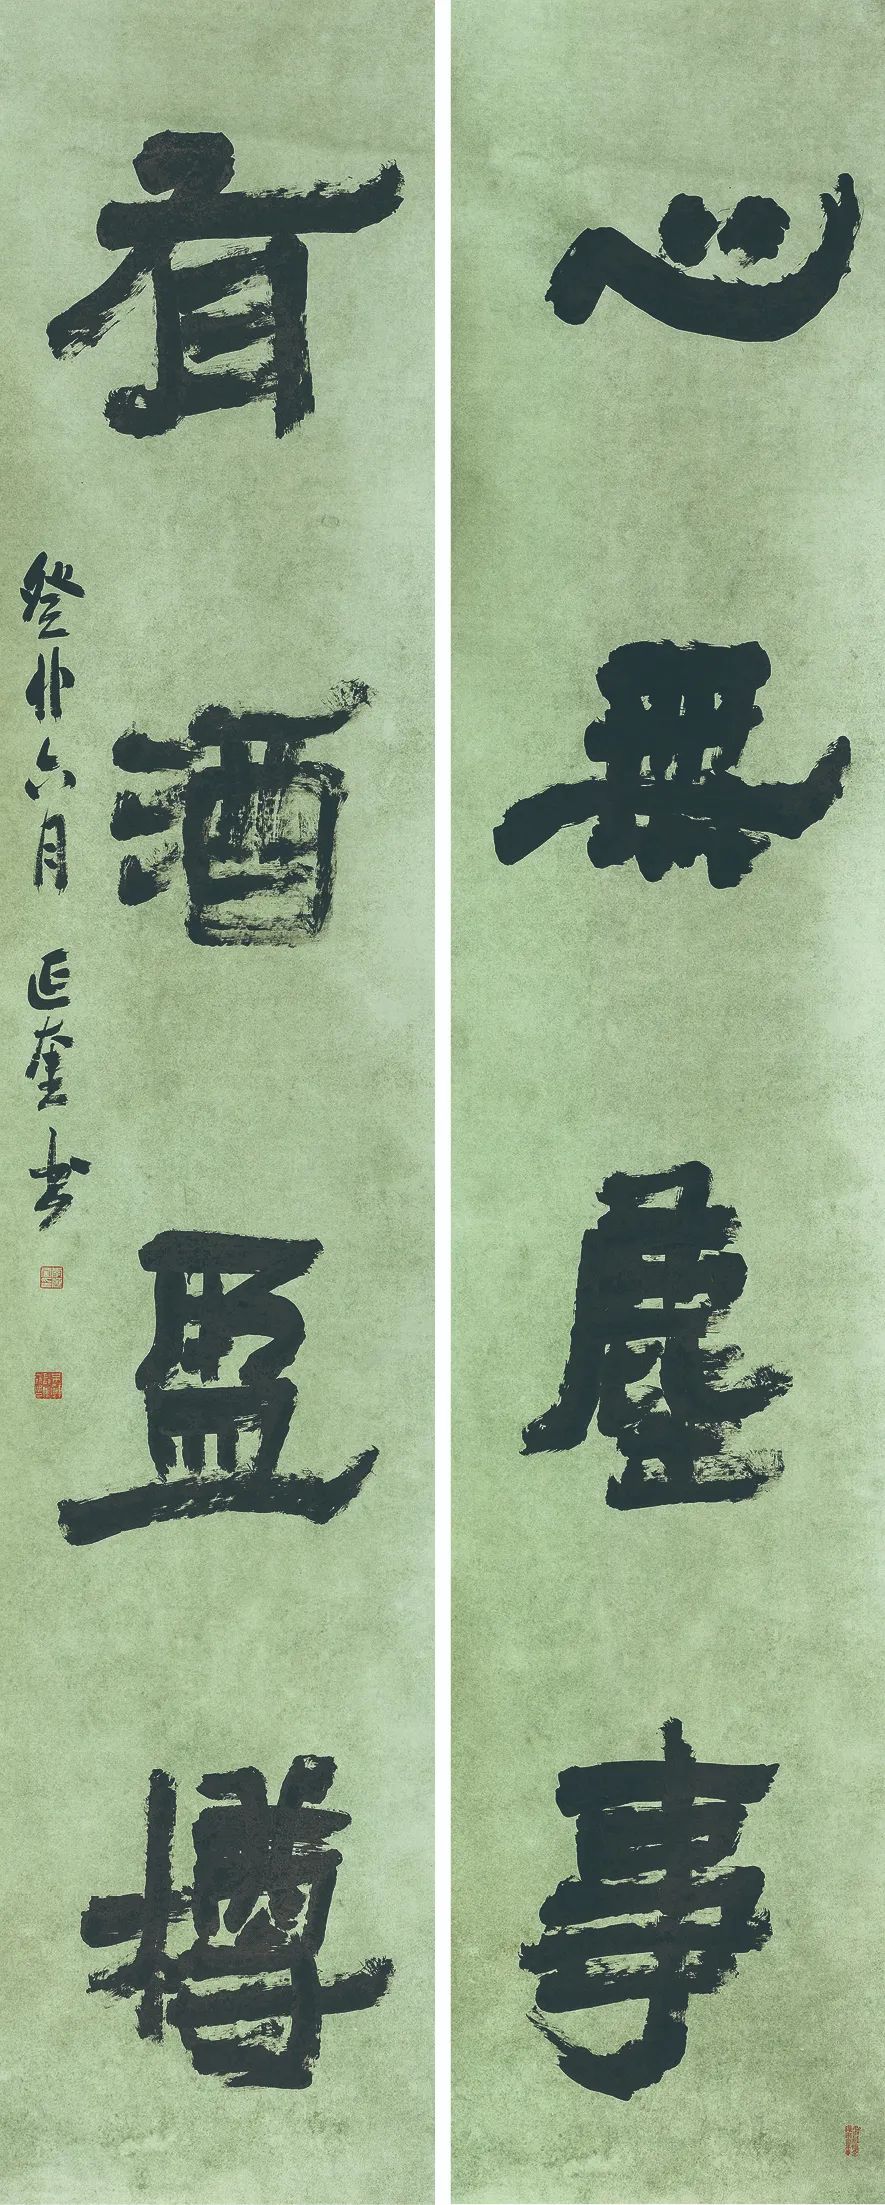 心無塵事
有酒盈樽
癸卯六月 延奎书